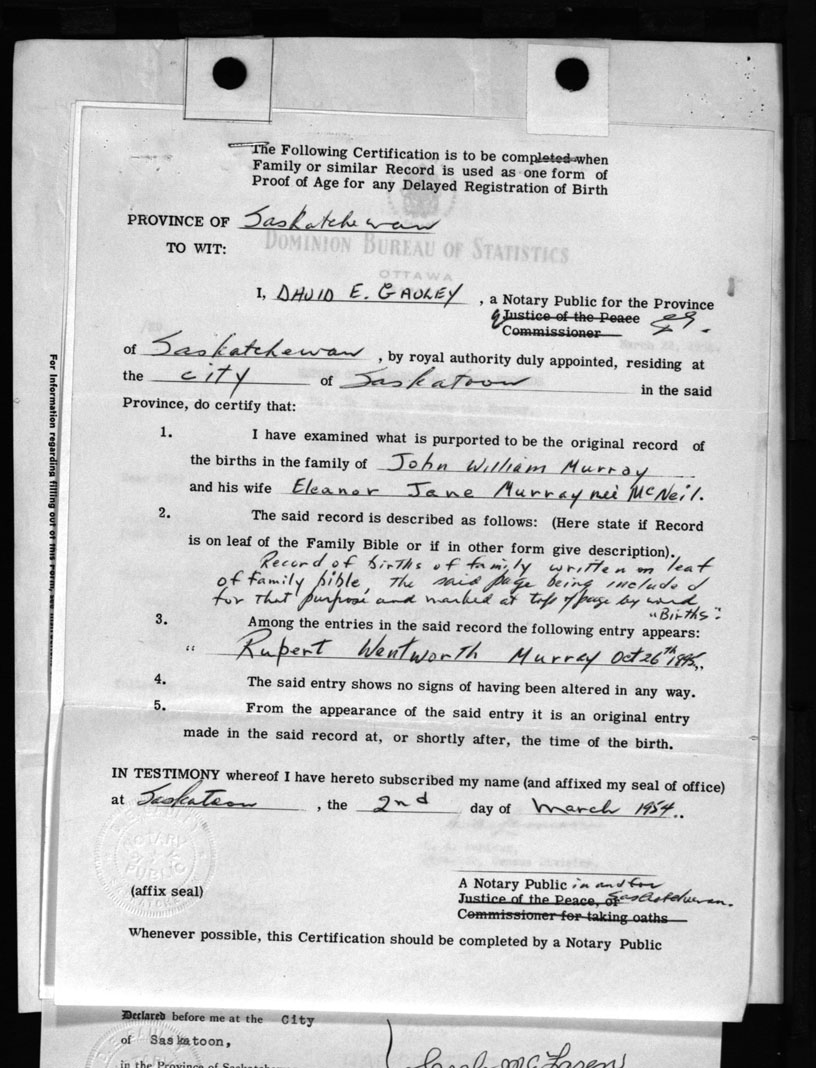 The Following Certification is to be completed when
Family or similar Record is used as one form of
Proof of Age for any Delayed Registration of Birth
PROVINCE OF Saskatchewan
TO WIT:
DOMINION BUREAU OF STATISTICS
OTTAWA
I, DAVID E. GAULEY, a Notary Public for the Province
Justice of the Peace
Commissioner
of Saskatchewan, by royal authority duly appointed, residing at
the city of Saskatoon in the said
Province, do certify that:
1. I have examined what is purported to be the original record of
the births in the family of John William Murray
and his wife Eleanor Jane Murray née McNeil.
2. The said record is described as follows: (Here state if Record
is on leaf of the Family Bible or if in other form give description).
Record of births of family written on leaf
of family bible, the said page being included
for that purpose and marked at top of page by word
"Births".
3. Among the entries in the said record the following entry appears:
" Rupert Wentworth Murray Oct 26th 1895„
4. The said entry shows no signs of having been altered in any way.
5. From the appearance of the said entry it is an original entry
made in the said record at, or shortly after, the time of the birth.
IN TESTIMONY whereof I have hereto subscribed my name (and affixed my seal of office)
at Saskatoon, the 2nd day of March 1954..
NOTARY
PUBLIC
(affix seal)
A Notary Public in and for
Justice of the Peace, of Saskatchewan.
Commissioner for taking oaths
Whenever possible, this Certification should be completed by a Notary Public
For Information regarding filling out of this Form, see
Declared before me at the City
of Saskatoon,
in the Province of
McLaren